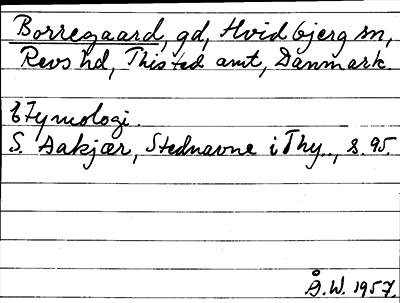 Borregaard, gd, Hvidbjerg sn,
Revs hd, Thisted amt, Danmark.
Etymologi.
S. Aakjær, Stednavne i Thy., s. 95.
Å.W. 1957.